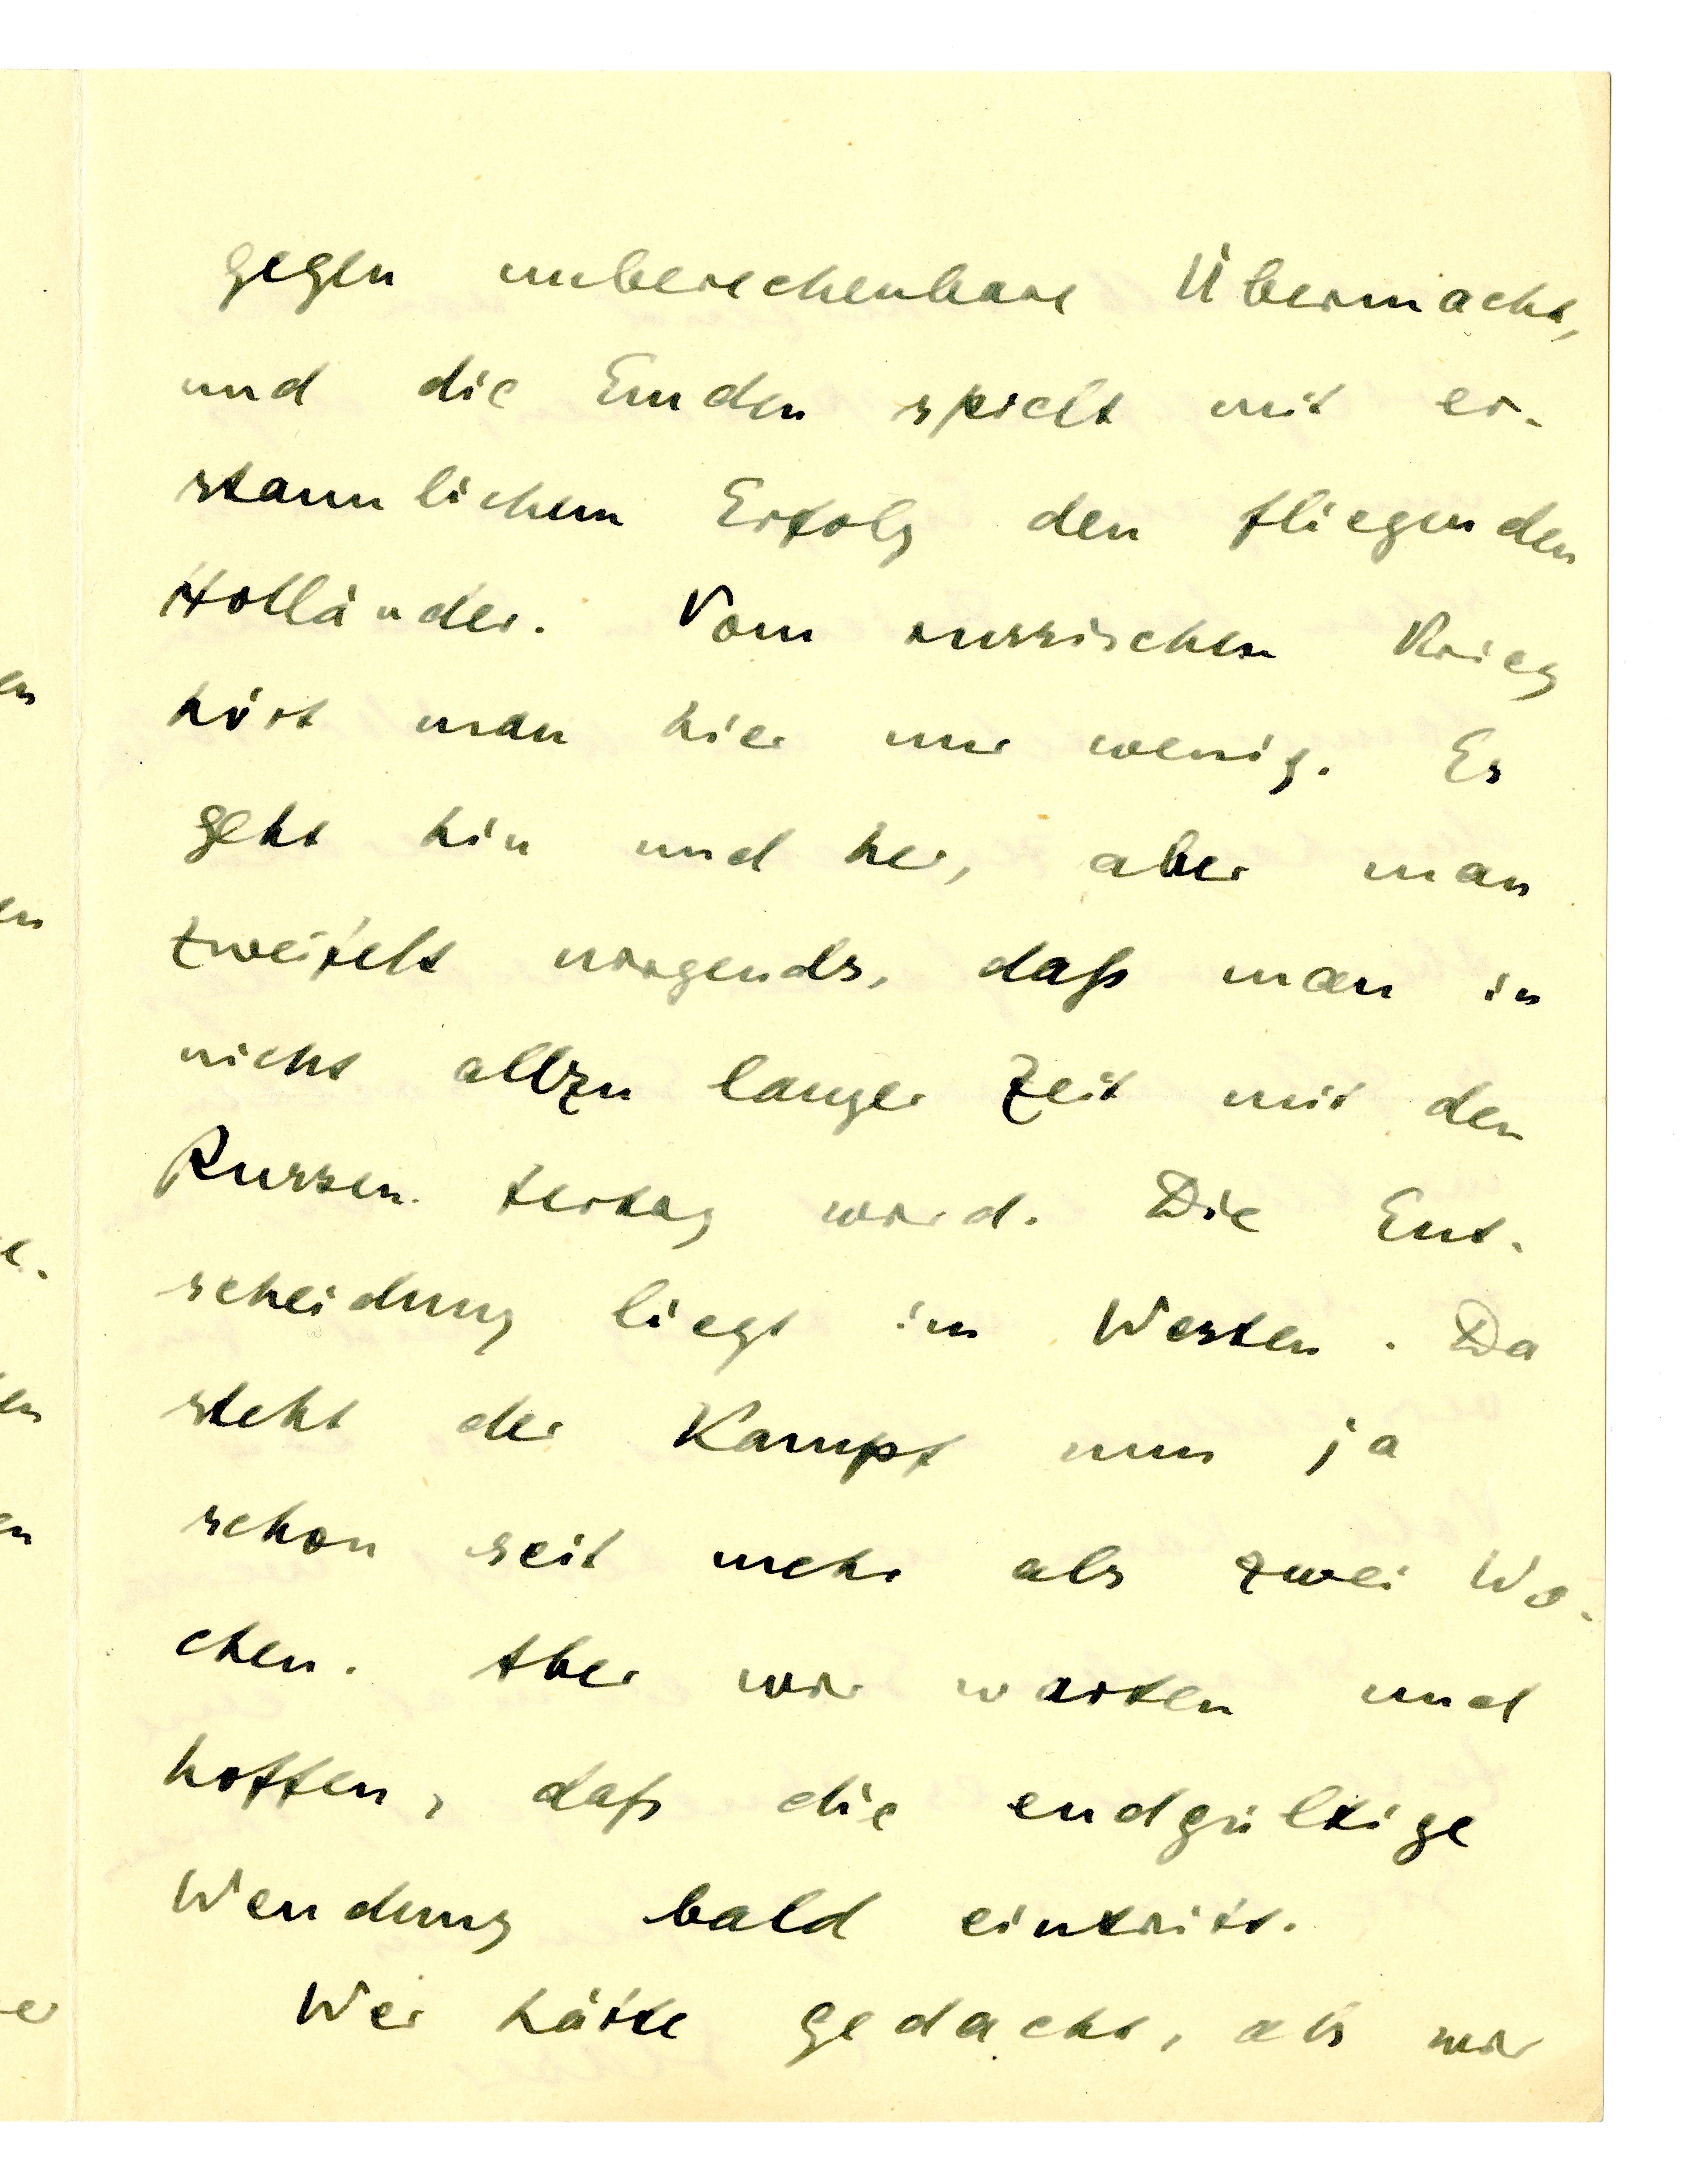 gegen unberechenbare Übermacht,
und die Emden spielt mit er-
staunlichem Erfolg den fliegenden
Holländer. Vom russischen Krieg
hört man hier nur wenig. Es
geht hin und her, aber man
zweifelt nirgends, daß man in
nicht allzu langer Zeit mit den
Russen fertig wird. Die Ent-
scheidung liegt im Westen. Da
steht der Kampf nun ja
schon seit mehr als zwei Wo-
chen. Aber wir warten und
hoffen, daß die endgültige
Wendung bald eintritt.
Wer hätte gedacht, als wir